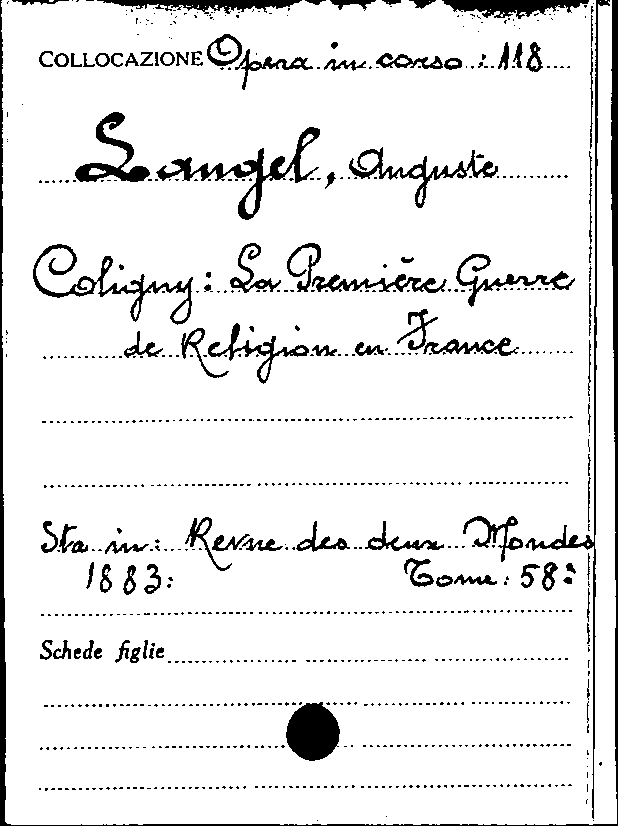 COLLOCAZIONE Opera in corso : 118
Laugel, Auguste
Coligny: La Première Guerre
de Religion en France
Sta in: Revue des deux Mondes
1883: Tome: 58°
Schede figlie